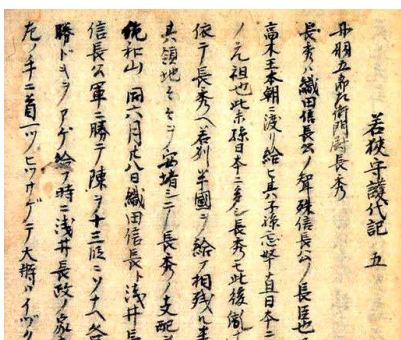 若狭守護代記 五
丹羽五郎左衛門尉長秀
長秀ハ織田信長公ノ聟殊信長公ノ長臣也
高木王本朝ニ渡リ給ヒ其子孫 直日本ニ
ノ元祖也此末孫日本ニ多シ長秀モ此後
依テ長秀ヘ若州半國ヲ給フ相残ル半
其領地 安堵シテ長秀ノ支配
山 同六月廿八日織田信長ト浅井長
信長公軍ニ勝テ陳ヲ十三段ニソナヘ
勝ドキヲアゲ給フ時ニ浅井長政ノ家
左ノ手ニ首一ツヒツサゲテ大将ハイヅク